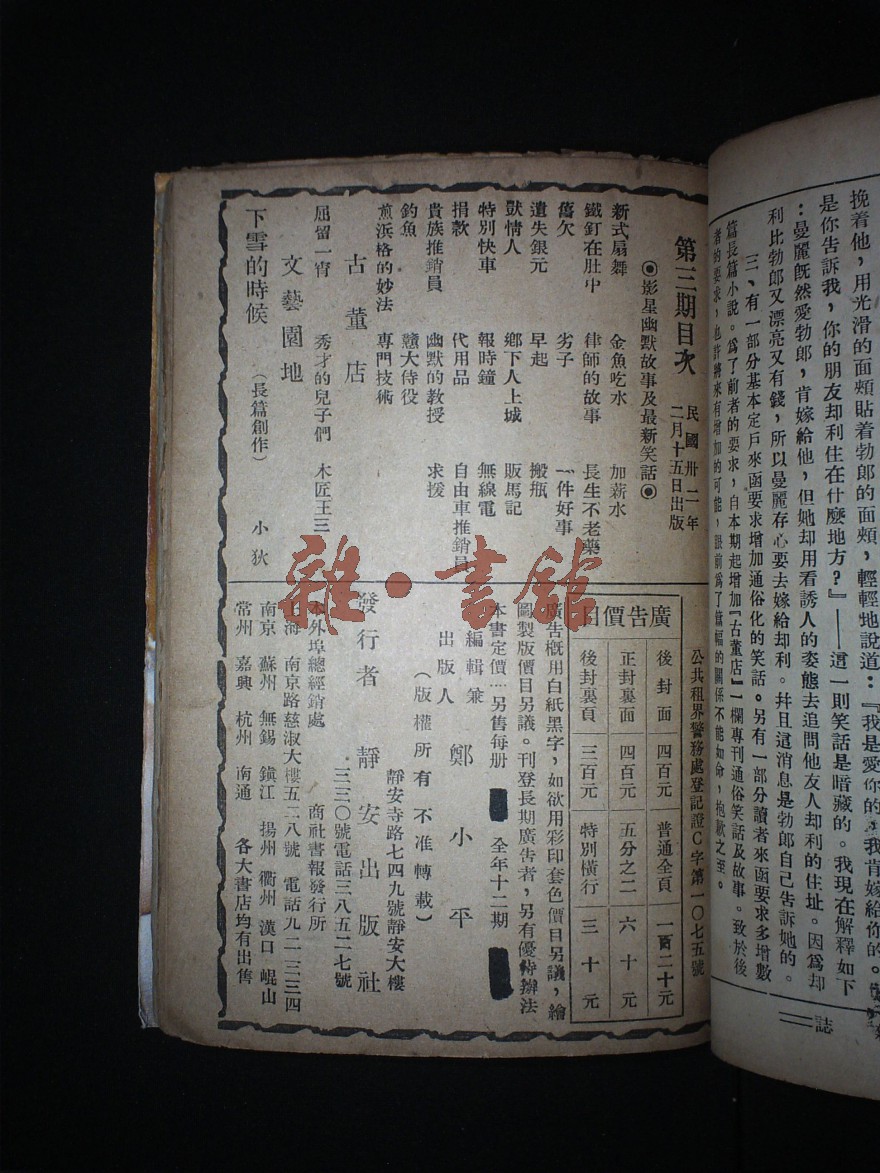 挽着他，用光滑的面頰貼着勃郎的面頰，輕輕地說道：『我是愛你的，我肯嫁給你的。
是你告訴我，你的朋友却利住在什麼地方？』——這一則笑話是暗藏的。我現在解釋如下
：曼麗旣然愛勃郎，肯嫁給他，但她却用看誘人的姿態去追問他友人却利的住址。因爲却
利比勃郎又漂亮又有錢，所以曼麗存心要去嫁給却利。幷且這消息是勃郎自己告訴她的。
三、有一部分基本定戶來函要求增加通俗化的笑話。另有一部分讀者來函要求多增數
篇長篇小說。爲了前者的要求，自本期起增加『古董店』一欄專刊通俗笑話及故事。致於後
者的要求，也許將來有增加的可能，眼前爲了篇幅的關係不能如命，抱歉之至。
誌
第三期目次
民國卅二年
二月十五日出版
◉影星幽默故事及最新笑話◉
新式扇舞 金魚吃水 加薪水
鐵釘在肚中 律師的故事 長生不老藥
舊欠 劣子 一件好事
遺失銀元 早起 搬瓶
獸情人 鄉下人上城 販馬記
特別快車 報時鐘 無線電
捐款 代用品 自由車推銷員
貴族推銷員 幽默的教授 求援
釣魚 戇大侍役
煎浜格的妙法 專門技術
古董店
屈留一宵 秀才的兒子們 木匠王三
文藝園地
下雪的時候 （長篇創作） 小狄
公共租界警務處登記證C字第一〇七五號
廣告價目
後封面 四百元 普通全頁 一百二十元
正封裏面 四百元 五分之二 六十元
後封裏頁 三百元 特別橫行 三十元
廣告概用白紙黑字，如欲用彩印套色價目另議，繪
圖製版價目另議。刊登長期廣告者，另有優待辦法
本書定價…另售每册 全年十二期
編輯兼
出版人 鄭小平
（版權所有 不准轉載）
發行者 靜安出版社
靜安寺路七四九號靜安大樓
三三〇號電話三八五二七號
本外埠總經銷處 商社書報發行所
上海 南京路慈淑大樓五二八號 電話九二三三四
南京 蘇州 無錫 鎭江 揚州 衢州 漢口 崐山
常州 嘉興 杭州 南通 各大書店均有出售
雜·書館